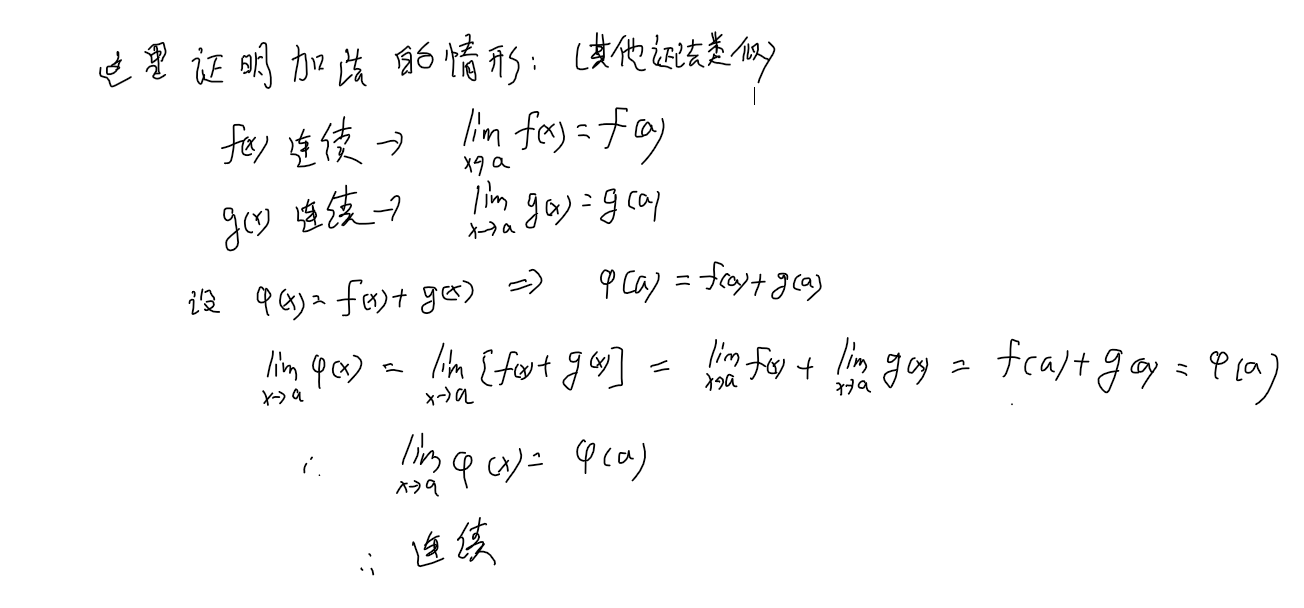 这里证明加法的情形：(其他证法类似)
f(x) 连续 → lim x→a f(x) = f(a)
g(x) 连续 → lim x→a g(x) = g(a)
设 φ(x) = f(x) + g(x) ⇒ φ(a) = f(a) + g(a)
lim x→a φ(x) = lim x→a [f(x) + g(x)] = lim x→a f(x) + lim x→a g(x) = f(a) + g(a) = φ(a)
∴ lim x→a φ(x) = φ(a)
∴ 连续